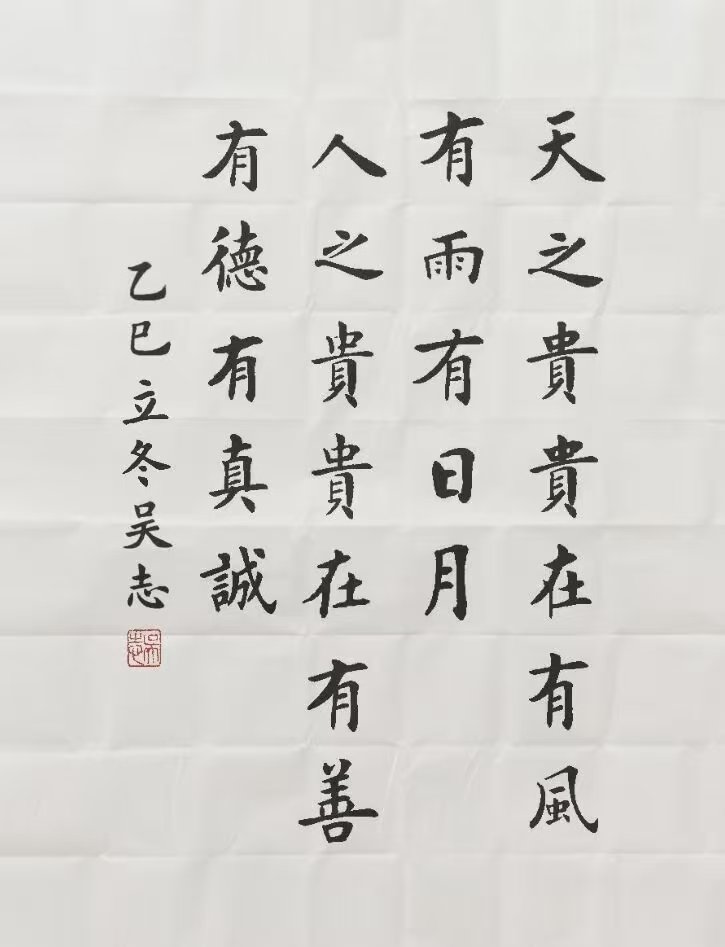 天之貴貴在有風
有雨有日月
人之貴貴在有善
有德有真誠
乙巳立冬吴志
吴志